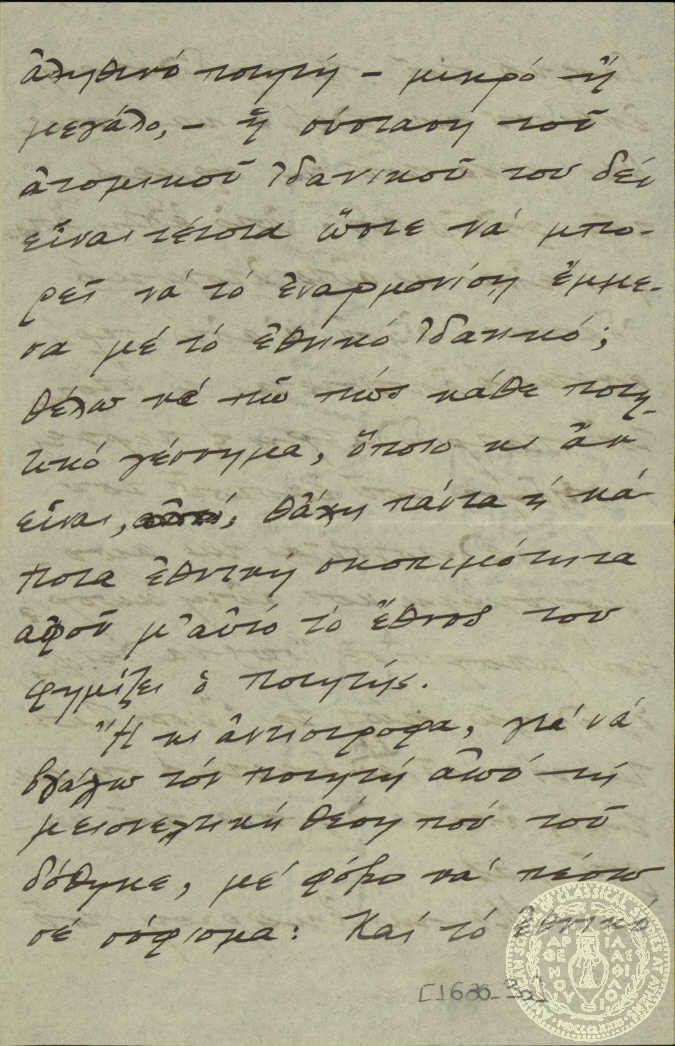 ἀληθινό ποιητή – μικρό ἤ
μεγάλο, – ἡ σύσταση τοῦ
ἀτομικοῦ ἰδανικοῦ του δέν
εἶναι τέτοια ὥστε νά μπο-
ρεῖ νά τό ἐναρμονίση ἔμμε-
σα μέ τό ἐθνικό ἰδανικό;
θέλω νά πῶ πώς κάθε ποιη-
τικό γέννημα, ὅποιο κι ἄν
εἶναι, θἄχη πάντα τή κά
ποια ἐθνική σκοπιμότητα
ἀφοῦ μ' αὐτό τό ἔθνος του
φημίζει ὁ ποιητής.
Ἤ κι ἀντίστροφα, γιά νά
βγάλω τόν ποιητή ἀπό τή
μειονεκτική θέση πού τοῦ
δόθηκε, μέ φόβο νά πέσω
σέ σόφισμα: Καί τό ἐθνικό